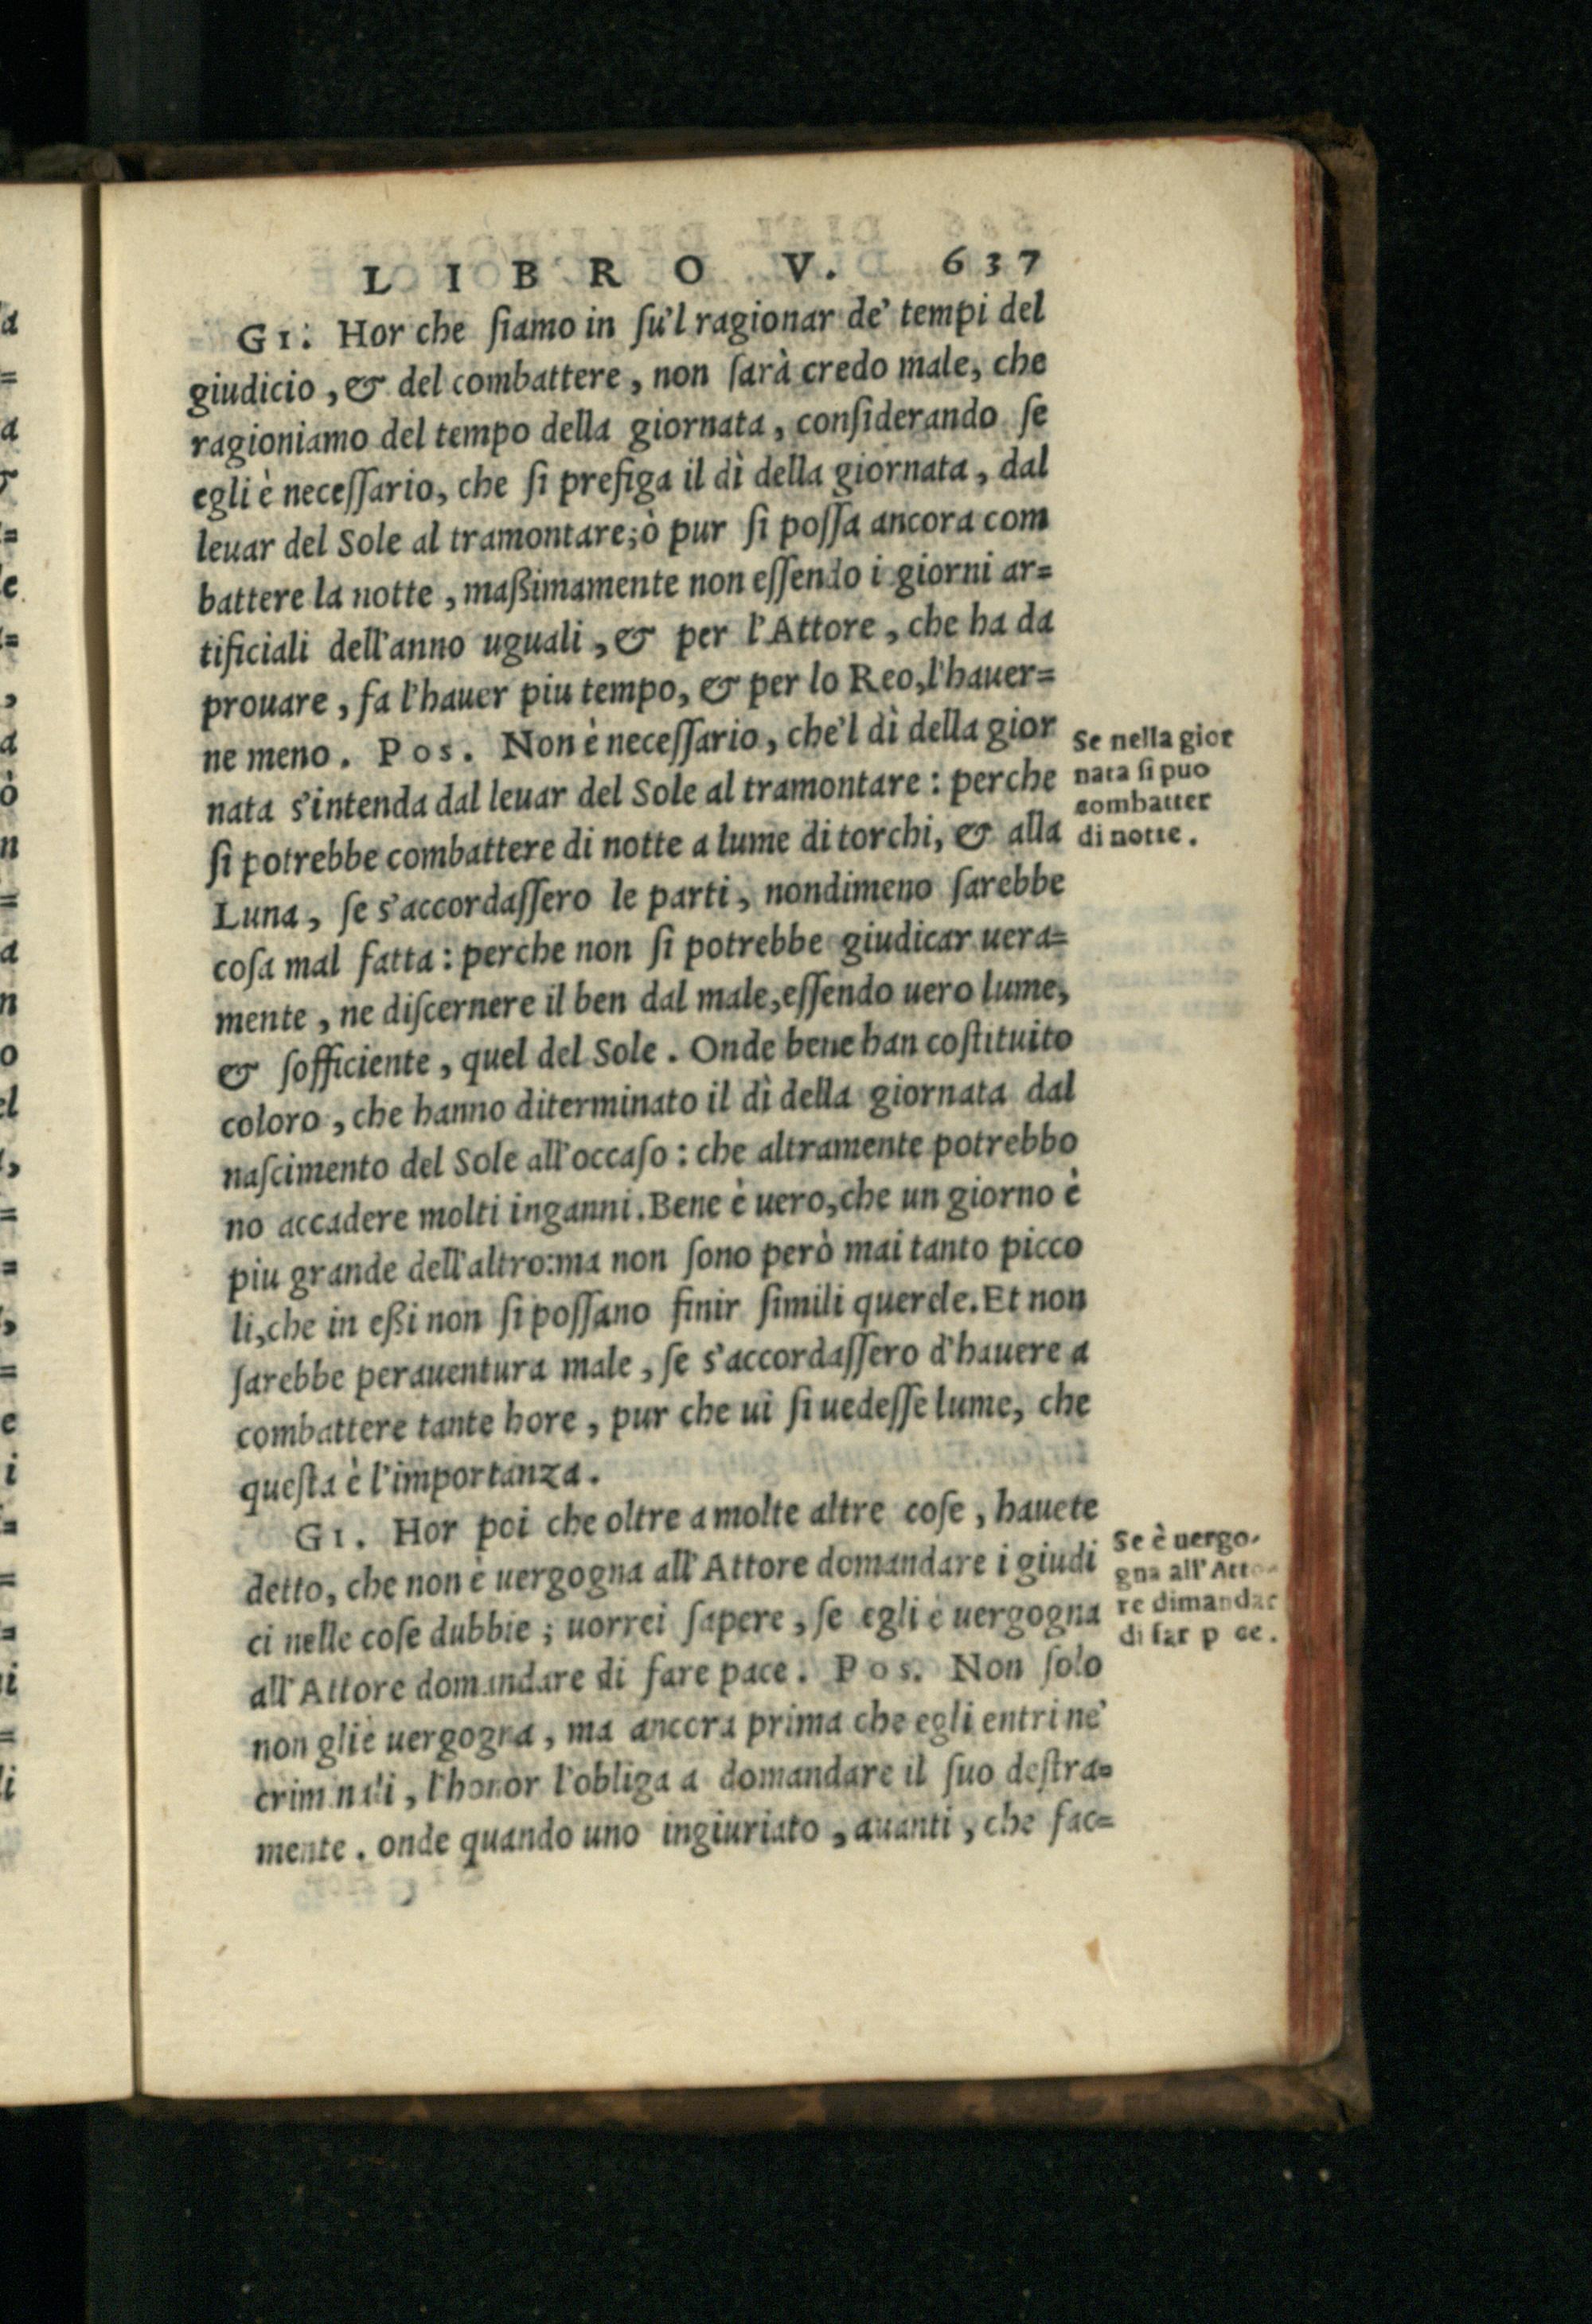 LIBRO V. 637
GI. Hor che ſiamo in ſu'l ragionar de' tempi del
giudicio, & del combattere, non ſarà credo male, che
ragioniamo del tempo della giornata, conſiderando ſe
egli è neceſſario, che ſi prefiga il dì della giornata, dal
leuar del Sole al tramontare; ò pur ſi poſſa ancora com
battere la notte, maßimamente non eſſendo i giorni ar=
tificiali dell'anno uguali, & per l'Attore, che ha da
prouare, fa l'hauer piu tempo, & per lo Reo, l'hauer=
ne meno. Pos. Non è neceſſario, che'l dì della gior
nata s'intenda dal leuar del Sole al tramontare: perche
ſi potrebbe combattere di notte a lume di torchi, & alla
Luna, ſe s'accordaſſero le parti, nondimeno ſarebbe
coſa mal fatta: perche non ſi potrebbe giudicar uera=
mente, ne diſcernere il ben dal male, eſſendo uero lume,
& ſofficiente, quel del Sole. Onde bene han coſtituito
coloro, che hanno diterminato il dì della giornata dal
naſcimento del Sole all'occaſo: che altramente potrebbo
no accadere molti inganni. Bene è uero, che un giorno è
piu grande dell'altro: ma non ſono però mai tanto picco
li, che in eßi non ſi poſſano finir ſimili querele. Et non
ſarebbe perauentura male, ſe s'accordaſſero d'hauere a
combattere tante hore, pur che ui ſi uedeſſe lume, che
queſta è l'importanza.
GI. Hor poi che oltre a molte altre coſe, hauete
detto, che non è uergogna all'Attore domandare i giudi
ci nelle coſe dubbie; uorrei ſapere, ſe egli è uergogna
all'Attore domandare di fare pace. Pos. Non ſolo
non gliè uergogna, ma ancora prima che egli entri ne'
criminali, l'honor l'obliga a domandare il ſuo deſtra=
mente. onde quando uno ingiuriato, auanti, che fac=
Se nella gior
nata ſi puo
combatter
di notte.
Se è uergo-
gna all'Atto-
re dimandar
di far pace.